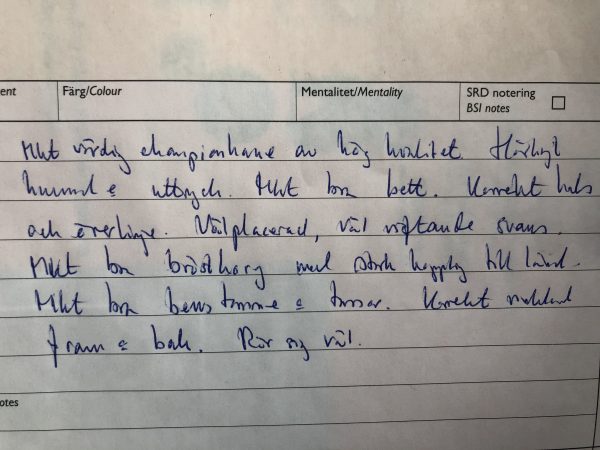 ent Färg/Colour Mentalitet/Mentality SRD notering
BSI notes
Mkt värdig championhane av hög kvalitet. Härligt
huvud & uttryck. Mkt bra bett. Korrekt hals
och överlinje. Välplacerad, väl viftande svans.
Mkt bra bröstkorg med stark koppling till länd.
Mkt bra benstomme & tassar. Korrekt vinklad
fram & bak. Rör sig väl.
otes